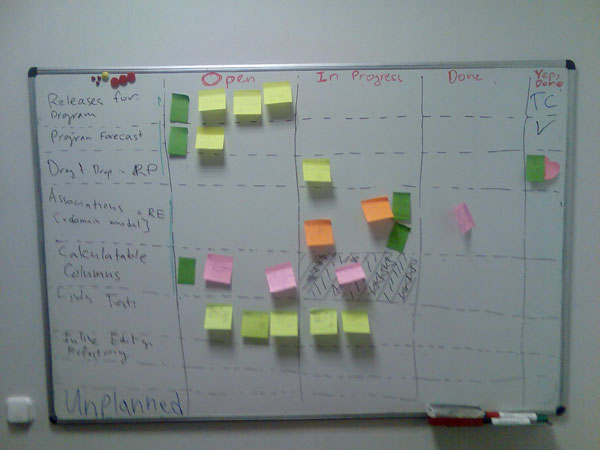 Open In Progress Done Yep, Done
Releases for Program TC
Program Forecast
Drag & Drop in RP
Associations in RE
[domain model]
Calculatable
Columns
Lists Tests
Inline Editing
Repository
Unplanned